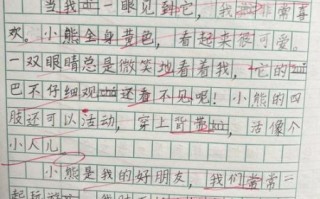 当我一眼见到它，我非常喜
欢。小熊全身黄色，看起来很可爱。
一双眼睛总是微笑地看着我，它的
巴不仔细观还看不见呢！小熊的四
肢还可以活动，穿上背，活像个
小人儿
小熊是我的好朋友，我们常常一
起玩